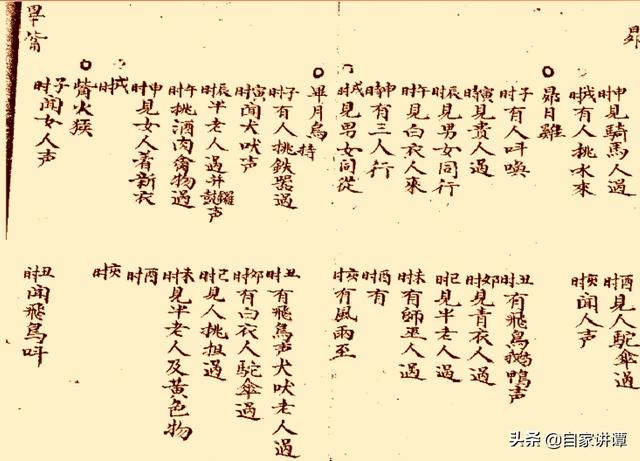 昴
申时見騎馬人過
戌时有人挑水來
昴日雞
子时有人呌喚
寅时見貴人過
辰时見男女同行
午时見白衣人來
申时有三人行
戌时見男女同從
畢月烏 持
子时有人挑鉄器過
寅时聞犬吠声
辰时半老人過并鑼鼓声
午时挑酒肉禽物過
申时見女人着新衣
戌时
觜火猴
子时聞女人声
畢觜
酉时見人駝傘過
亥时聞人声
丑时有飛鳥鵝鴨声
卯时見青衣人過
巳时見半老人過
未时有師巫人過
酉时有
亥时有風雨至
丑时有飛鳥声犬吠老人過
卯时有白衣人駝傘過
巳时見人挑担過
未时見半老人及黄色物
酉时
亥时
丑时聞飛鳥呌
头条 @自家讲谭